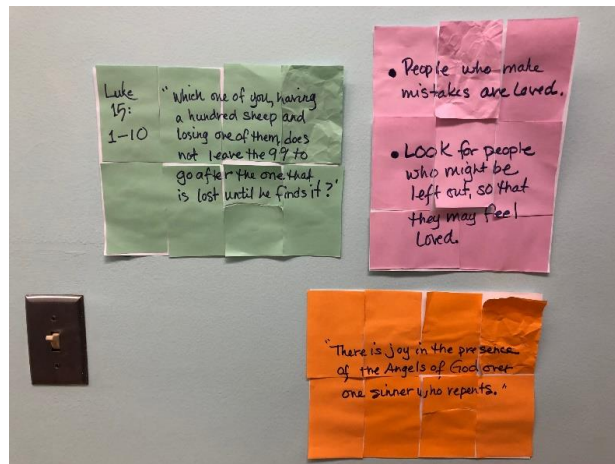 Luke
15:
1-10
"Which one of you, having
a hundred sheep and
losing one of them, does
not leave the 99 to
go after the one that
is lost until he finds it?"
• People who make
mistakes are loved.
• LOOK for people
who might be
left out, so that
they may feel
Loved.
"There is joy in the presence
of the Angels of God over
one sinner who repents."